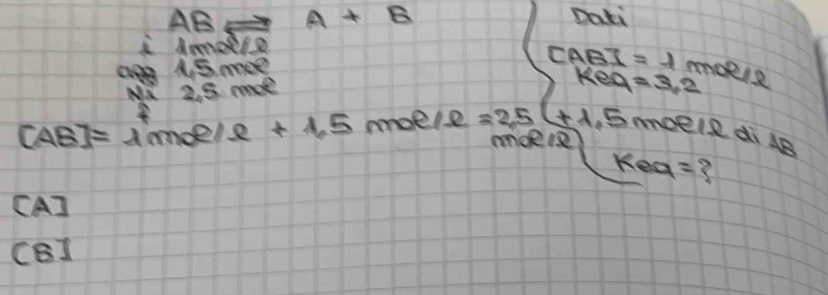 AB ⇌ A + B
i 1mol/l
agg 1,5 mol
Ni 2,5 mol
f
[AB]= 1mol/l + 1,5 mol/l = 2,5 mol/l
[A]
[B]
Dati
[AB] = 1 mol/l
Keq = 3,2
+ 1,5 mol/l di AB
Keq = ?